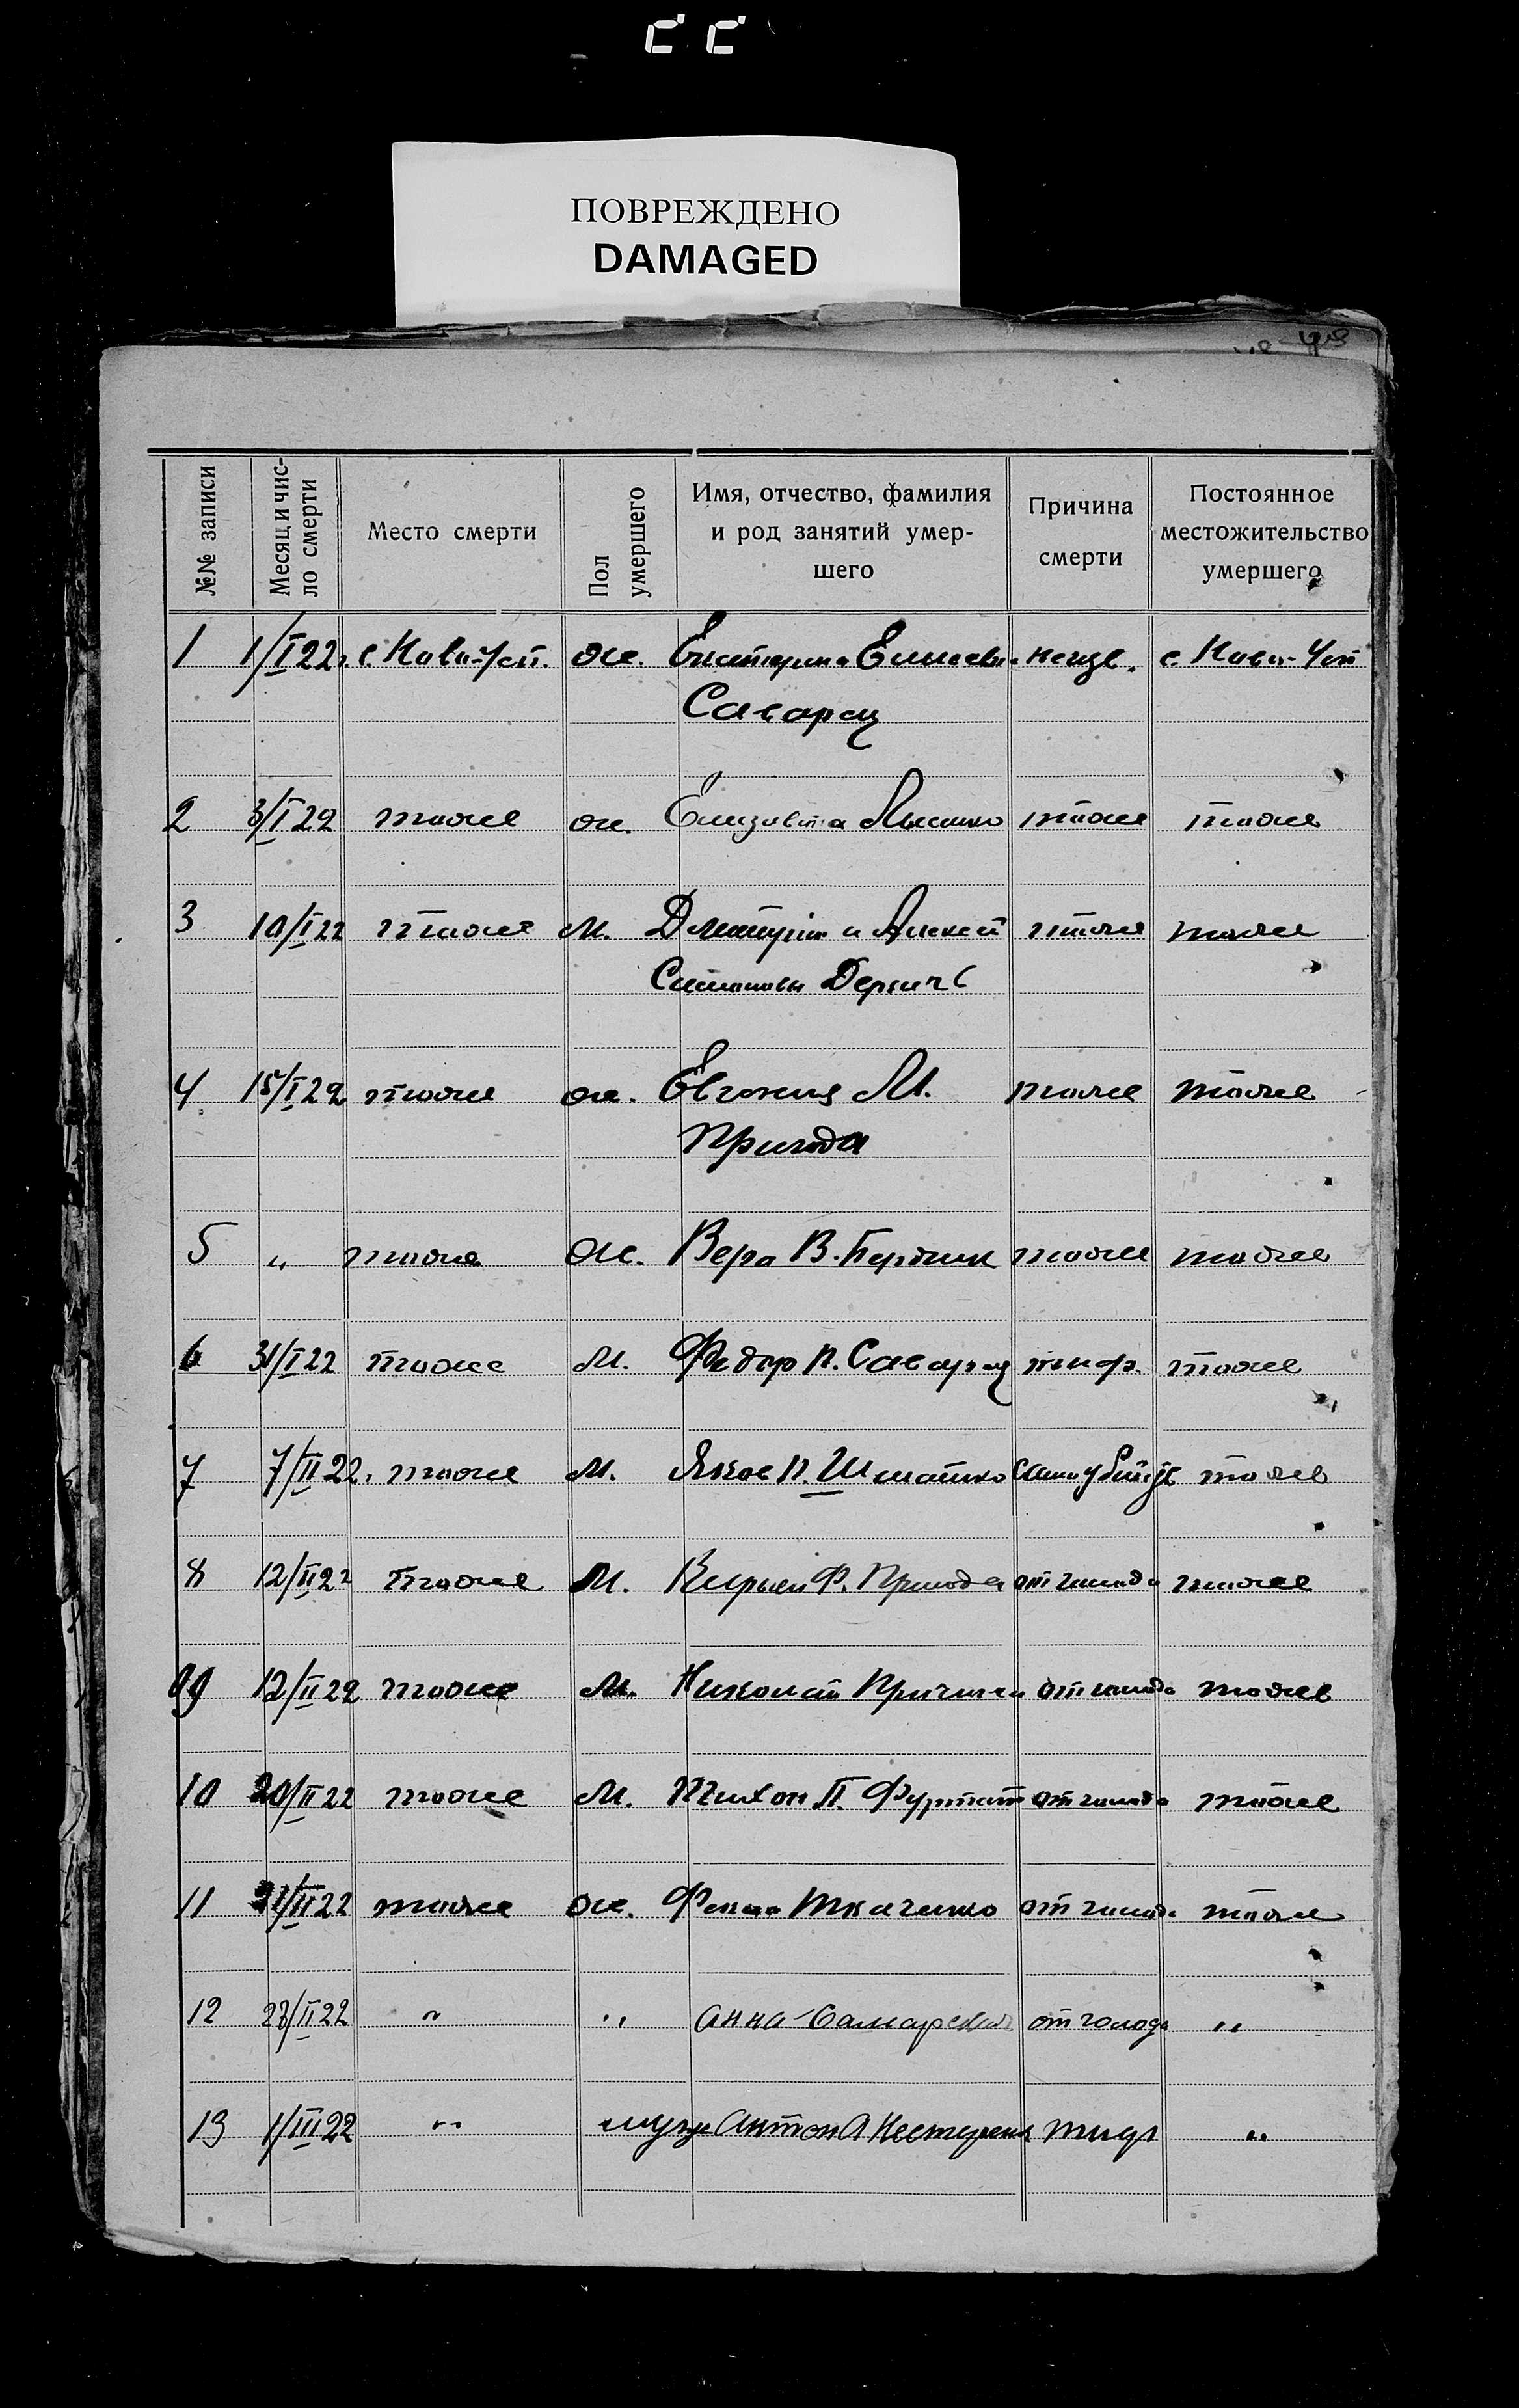 ПОВРЕЖДЕНО
DAMAGED
№№ записи
Месяц и число смерти
Место смерти
Пол умершего
Имя, отчество, фамилия
и род занятий умер-
шего
Причина
смерти
Постоянное
местожительство
умершего
1 1/I 22 с. Ново-Усп. ж. Екатерина неизв. с. Ново-Усп
Саварец
2 3/I 22 тоже ж. Елизавета Лысенко тоже тоже
3 10/I 22 тоже М. Дмитрий и Алексей тоже тоже
4 15/I 22 тоже ж. Евгения М. тоже тоже
Пригода
5 " тоже ж. Вера В. тоже тоже
6 31/I 22 тоже М. Федор П. Саварец тиф. тоже
7 7/II 22 тоже М. Яков П. Шматко самоуб. тоже
8 12/II 22 тоже М. Ф. Пригода от голода тоже
9 12/II 22 тоже М. Николай от голода тоже
10 20/II 22 тоже М. Тихон П. от голода тоже
11 21/II 22 тоже ж. Ткаченко от голода тоже
12 28/II 22 " " Анна Самарская от голода "
13 1/III 22 " муж Антон А Нестеренк тиф "